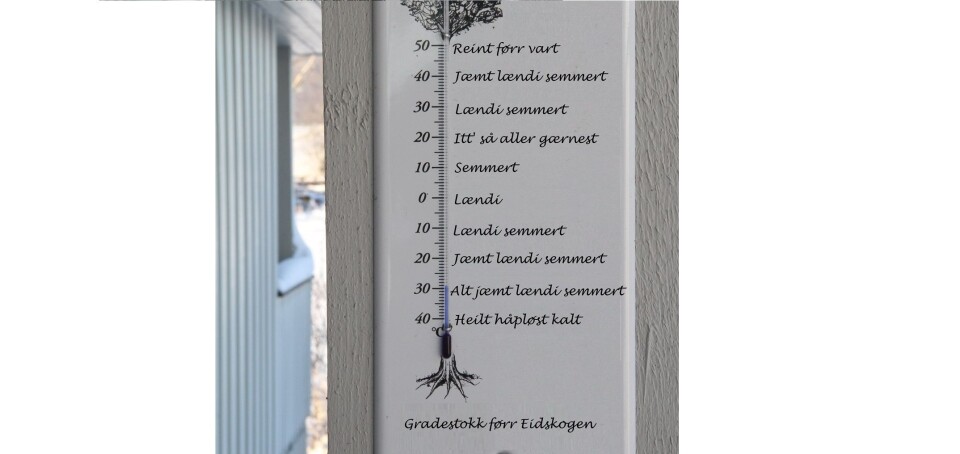 50 Reint førr vart
40 Jæmt lændi semmert
30 Lændi semmert
20 Itt' så aller gærnest
10 Semmert
0 Lændi
10 Lændi semmert
20 Jæmt lændi semmert
30 Alt jæmt lændi semmert
40 Heilt håpløst kalt
°C
Gradestokk førr Eidskogen